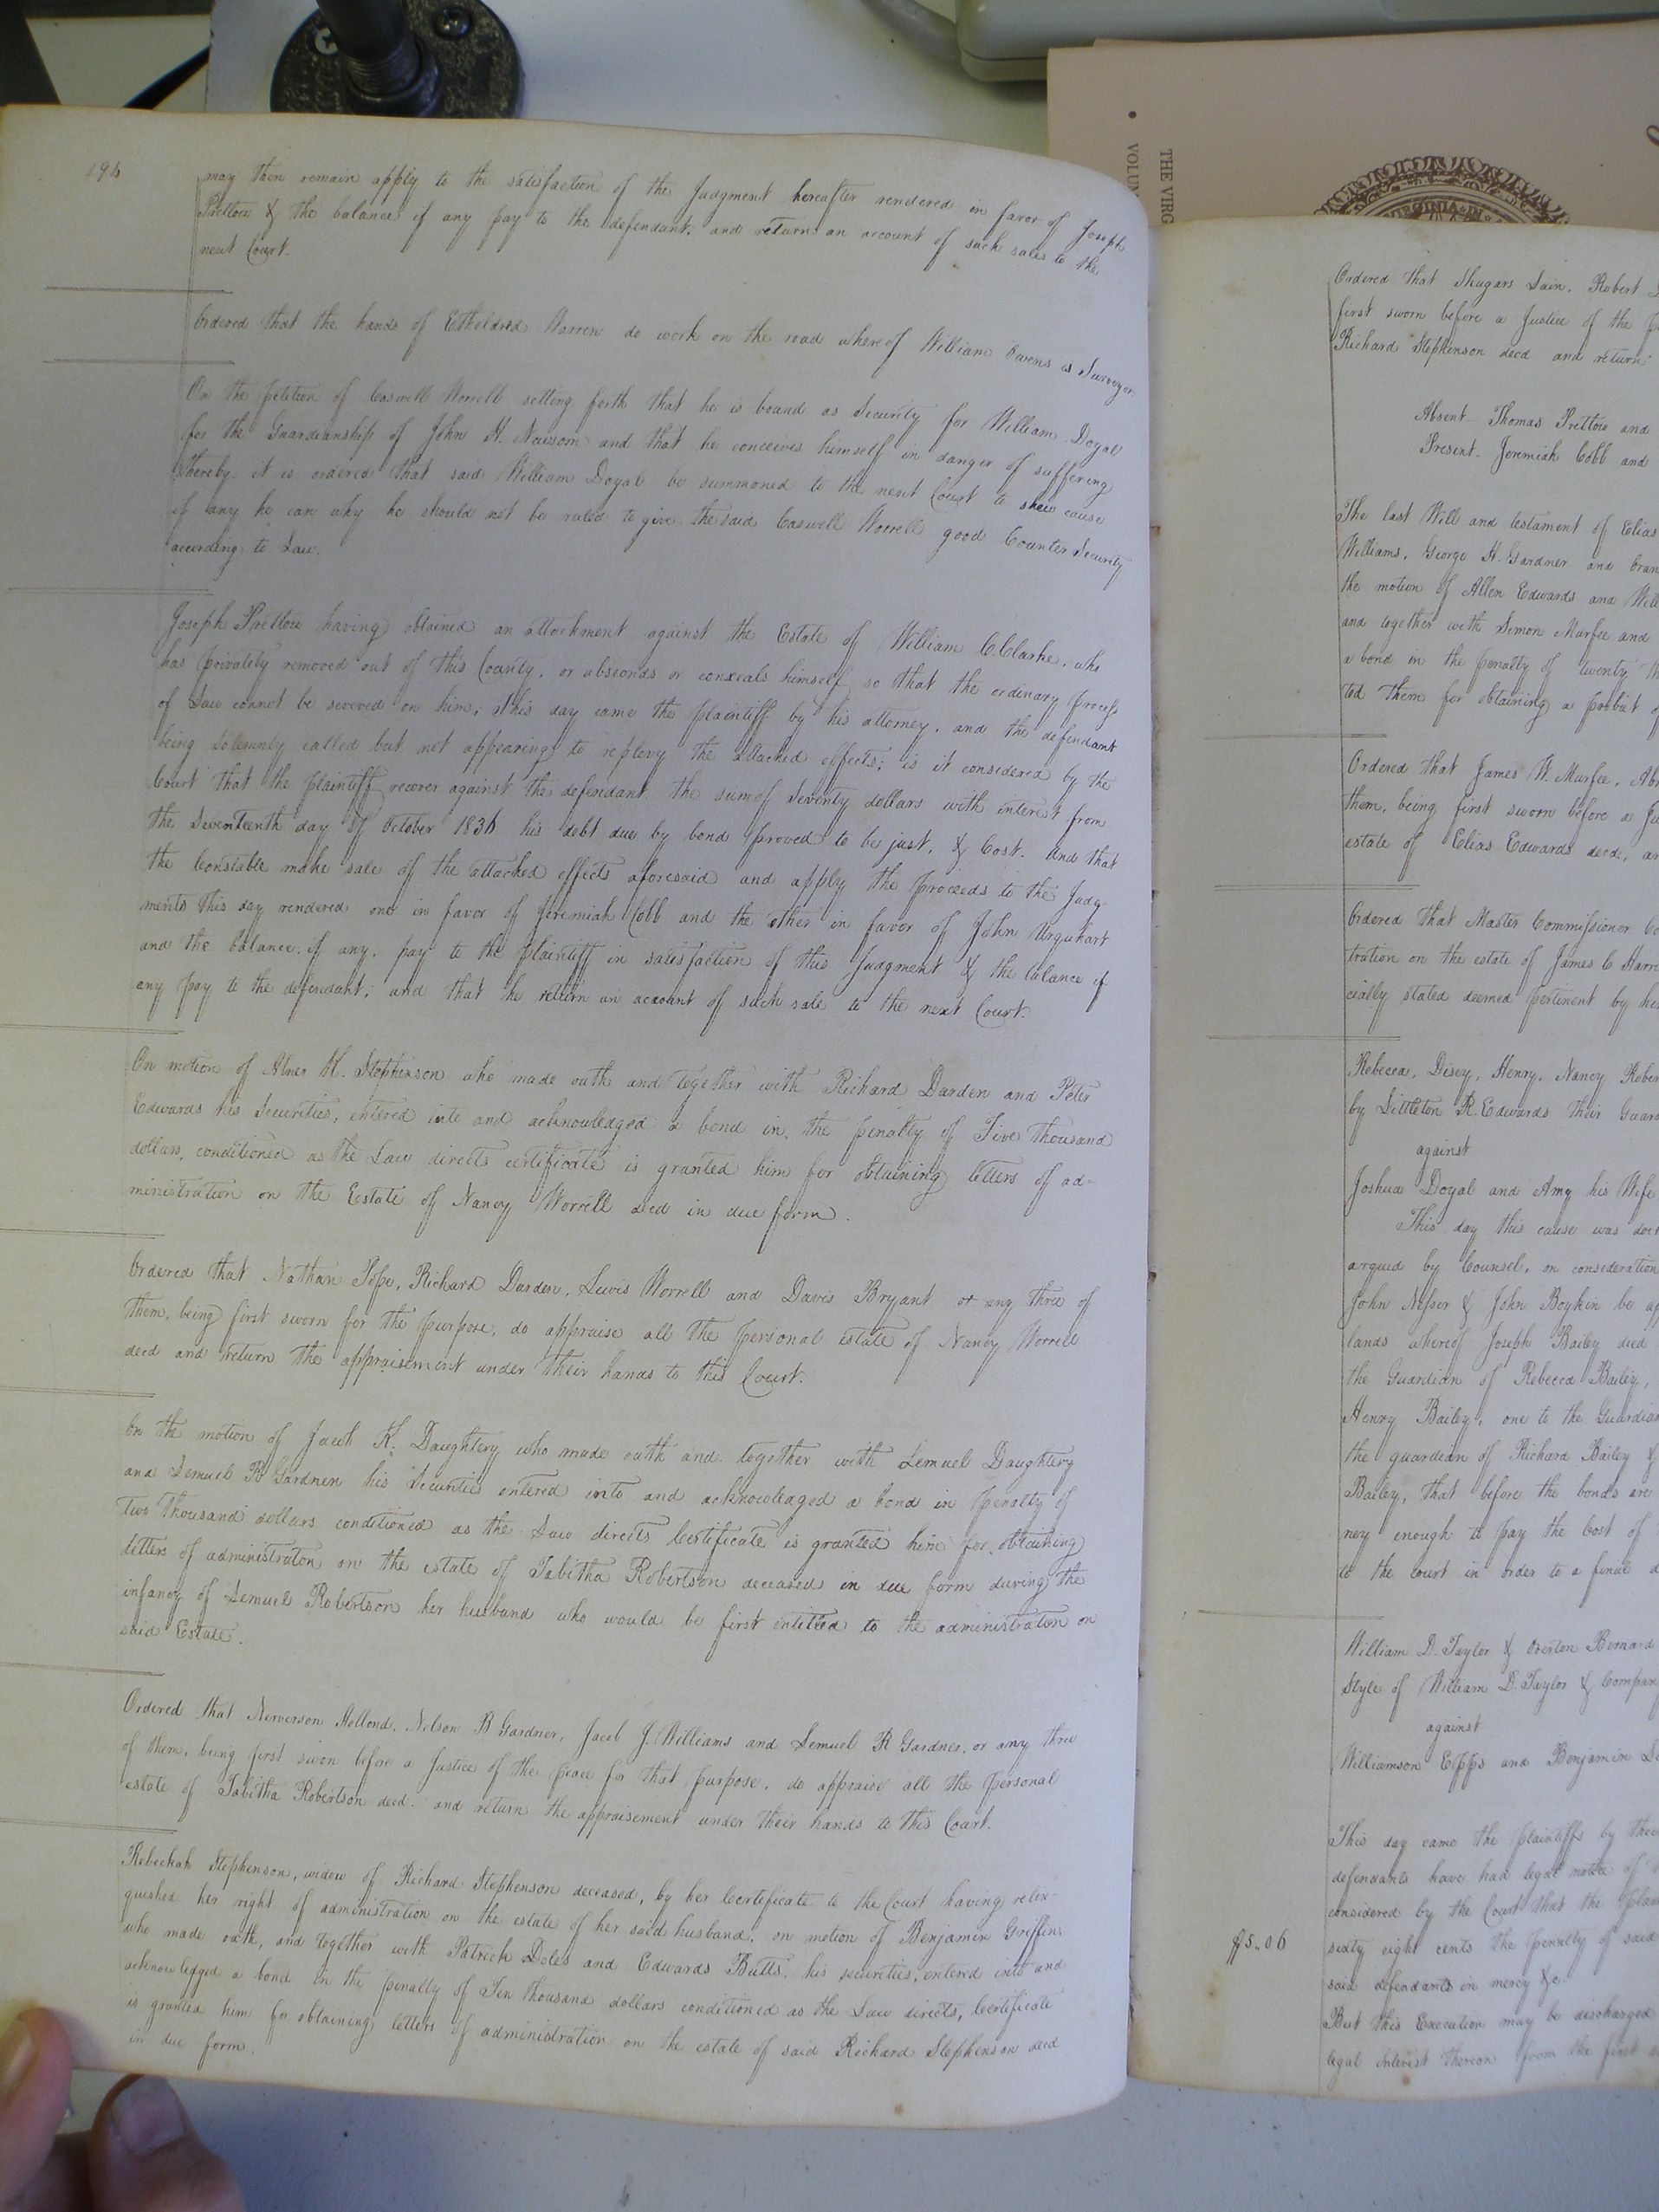 194
may then remain apply to the satisfaction of the Judgment hereafter rendered in favor of Joseph
Prettow & the balance if any pay to the defendant. and return an account of such sales to the
next Court.
Ordered that the hands of Etheldred Warren do work on the road whereof William Owens is Surveyor
On the petition of Caswell Worrell setting forth that he is bound as Security for William Doyal
for the Guardianship of John H. Newsom and that he conceives himself in danger of suffering
thereby it is ordered that said William Doyal be summoned to the next Court to shew cause
if any he can why he should not be ruled to give the said Caswell Worrell good Counter Security
according to Law.
Joseph Prettow having obtained an attachment against the Estate of William C. Clarke, who
has privately removed out of this County, or absconds or conceals himself so that the ordinary process
of Law cannot be served on him; This day came the plaintiff by his attorney, and the defendant
being solemnly called but not appearing to replevy the attached effects; is it considered by the
Court that the plaintiff recover against the defendant the sum of Seventy dollars with interest from
the Seventeenth day of October 1836 his debt due by bond proved to be just, & Cost. And that
the Constable make sale of the attached effects aforesaid and apply the proceeds to the Judg-
ments this day rendered one in favor of Jeremiah Cobb and the other in favor of John Urquhart
and the balance, if any, pay to the plaintiff in satisfaction of this Judgment & the balance if
any pay to the defendant; and that he return an account of such sale to the next Court.
On motion of Abner H. Stephenson who made oath and together with Richard Darden and Peter
Edwards his Securities, entered into and acknowledged a bond in the penalty of Five thousand
dollars, conditioned as the Law directs certificate is granted him for obtaining letters of ad-
ministration on the Estate of Nancy Worrell decd in due form.
Ordered that Nathan Pope, Richard Darden, Lewis Worrell and Davis Bryant or any three of
them, being first sworn for the purpose, do appraise all the personal estate of Nancy Worrell
decd and return the appraisement under their hands to this Court.
On the motion of Jacob K. Daughtery who made oath and together with Lemuel Daughtery
and Lemuel R Gardner his Securities entered into and acknowledged a bond in penalty of
two thousand dollars conditioned as the Law directs Certificate is granted him for obtaining
letters of administraton on the estate of Tabitha Robertson deceased in due form during the
infancy of Lemuel Robertson her husband who would be first intitled to the administration on
said Estate.
Ordered that Nerverson Hollond, Nelson B Gardner, Jacob J. Williams and Lemuel R Gardner, or any three
of them, being first swon before a Justice of the peace for that purpose, do appraise all the personal
estate of Tabitha Robertson decd. and return the appraisement under their hands to this Court.
Rebeckah Stephenson, widow of Richard Stephenson deceased, by her Certificate to the Court having relin-
quished her right of administration on the estate of her said husband, on motion of Benjamin Griffin
who made oath, and together with Patrick Doles and Edwards Butts, his securities, entered into and
acknowledged a bond in the penalty of Ten thousand dollars conditioned as the Law directs, Certificate
is granted him for obtaining letters of administration on the estate of said Richard Stephenson decd
in due form.
THE VIRG
VOLUM
VIRGINIA IN
Ordered that Shugars Lain, Robert
first sworn before a Justice of the
Richard Stephenson decd and return
Absent Thomas Prettow and
Present. Jeremiah Cobb and
The last Will and testament of Elias
Williams, George H. Gardner and
the motion of Allen Edwards and
and together with Simon Murfee and
a bond in the penalty of twenty
ted them for obtaining a probat
Ordered that James W. Murfee,
them, being first sworn before a
estate of Elias Edwards decd,
Ordered that Master Commissioner
tration on the estate of James C
cially stated deemed pertinent by
Rebecca, Disey, Henry, Nancy
by Littleton R. Edwards their
against
Joshua Doyal and Amy his Wife
This day this cause was
argued by Counsel, on consideration
John & John Boykin be
lands whereof Joseph Bailey died
the Guardian of Rebecca Bailey,
Henry Bailey, one to the Guardian
the guardian of Richard Bailey &
Bailey, that before the bonds are
ney enough to pay the Cost of
to the court in order to a final
William D. Taylor & Overton Bernard
Style of William D. Taylor &
against
Williamson Epps and Benjamin
This day came the plaintiffs by
defendants have had legal notice of
considered by the Court that the
$5..06
sixty eight cents the penalty of said
said defendants in mercy &c.
But this Execution may be discharged
legal interest thereon from the first